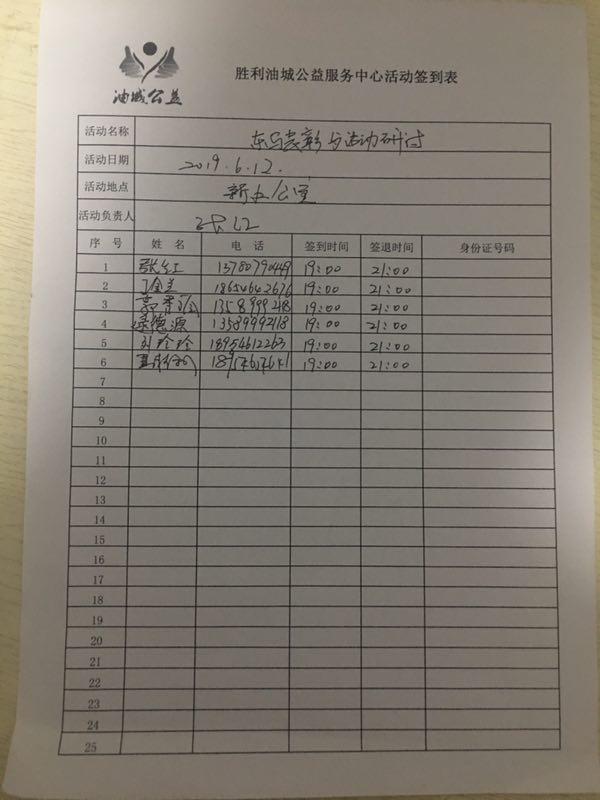 油城公益
胜利油城公益服务中心活动签到表
活动名称 活动研讨
活动日期 2019.6.12.
活动地点 新办公室
活动负责人
序 号 姓 名 电 话 签到时间 签退时间 身份证号码
1 张红 13780790449 19:00 21:00
2 丁金兰 18654642676 19:00 21:00
3 19:00 21:00
4 德源 13589992118 19:00 21:00
5 刘珍珍 18954612263 19:00 21:00
6 19:00 21:00
7
8
9
10
11
12
13
14
15
16
17
18
19
20
21
22
23
24
25